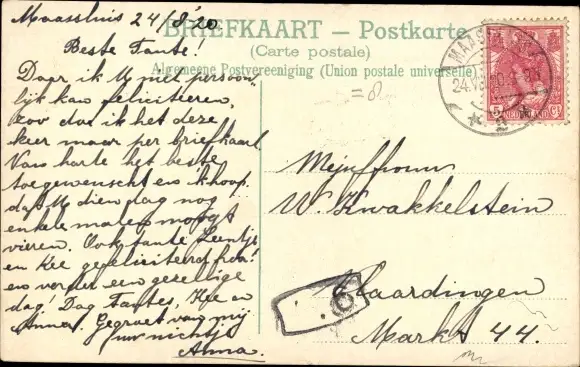 Maassluis 24/8/'20
BRIEFKAART – Postkarte
(Carte postale)
Algemeene Postvereeniging (Union postale universelle)
Beste Tante!
Daar ik U niet persoon-
lijk kan feliciteeren,
zoo dan ik het deze
keer maar per briefkaart
Van harte het beste
toegewenscht en 'k hoop
dat U dien dag nog
enkele malen moogt
vieren. Ook tante Leentje
en Kee gefeliciteerd hoor!
en verder een gezellige
dag! Dag Tantes, Kee en
Anna. Gegroet van mij
uw nichtje
Anna.
Mejuffrouw
W. Kwakkelstein
Vlaardingen
Markt 44.
MAASSLUIS
24.VIII
NEDERLAND
5